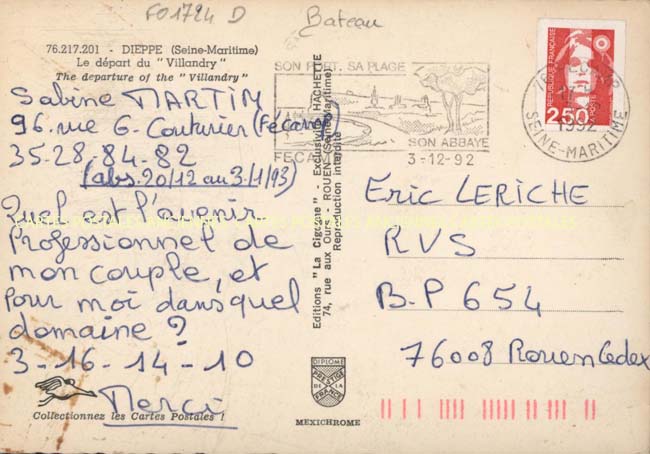 FO1724 D
Bateau
76.217.201 - DIEPPE (Seine-Maritime)
Le départ du "Villandry"
The departure of the "Villandry"
Sabine MARTIN
96. rue G. Couturier (Fécamp)
35-28-84-82
(abs. 20/12 au 3/1/93)
Quel est l'avenir
Professionnel de
mon couple, et
Pour moi dans quel
domaine ?
3-16-14-10
Merci
Collectionnez les Cartes Postales !
Editions "La Cigogne" - Exclusivité HACHETTE
74, rue aux Ours - ROUEN (Seine-Maritime)
Reproduction interdite
DIPLOME
PRESTIGE
DE LA
FRANCE
MEXICHROME
SON PORT. SA PLAGE
SON ABBAYE
FECAMP
3-12-92
76
1992
SEINE-MARITIME
REPUBLIQUE FRANÇAISE
LA POSTE
2,50
Eric LERICHE
RVS
B.P 654
76008 Rouen Cedex